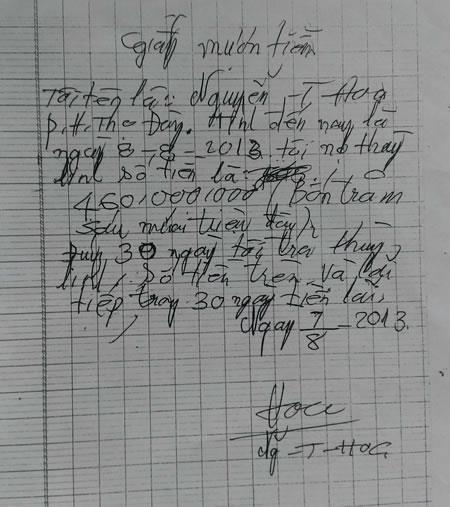 Giấy mượn tiền
Tôi tên là: Nguyễn T Hoa
P. H. Tính đến nay là
ngày 8-8-2013 tôi nợ thầy
Linh số tiền là
460,000,000 Bốn trăm
sáu mươi triệu
30 ngày tôi trả thầy
Linh số tiền trên và lãi
tiếp trong 30 ngày tiền lãi,
Ngày 7/8-2013.
Hoa
Ng-T-Hoa